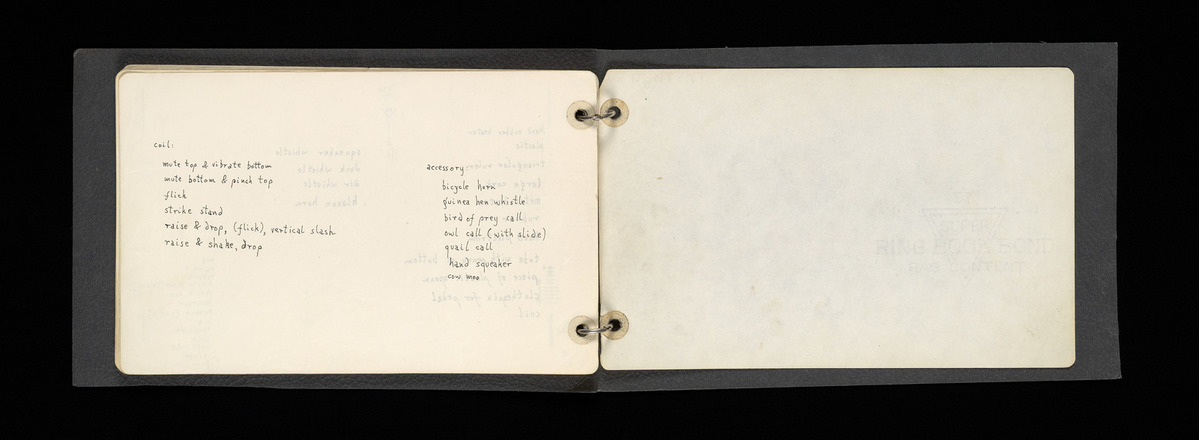 coil:
mute top & vibrate bottom
mute bottom & pinch top
flick
strike stand
raise & drop, (flick), vertical slash
raise & shake, drop
accessory:
bicycle horn
guinea hen whistle
bird of prey call
owl call (with slide)
quail call
hand squeaker
cow moo